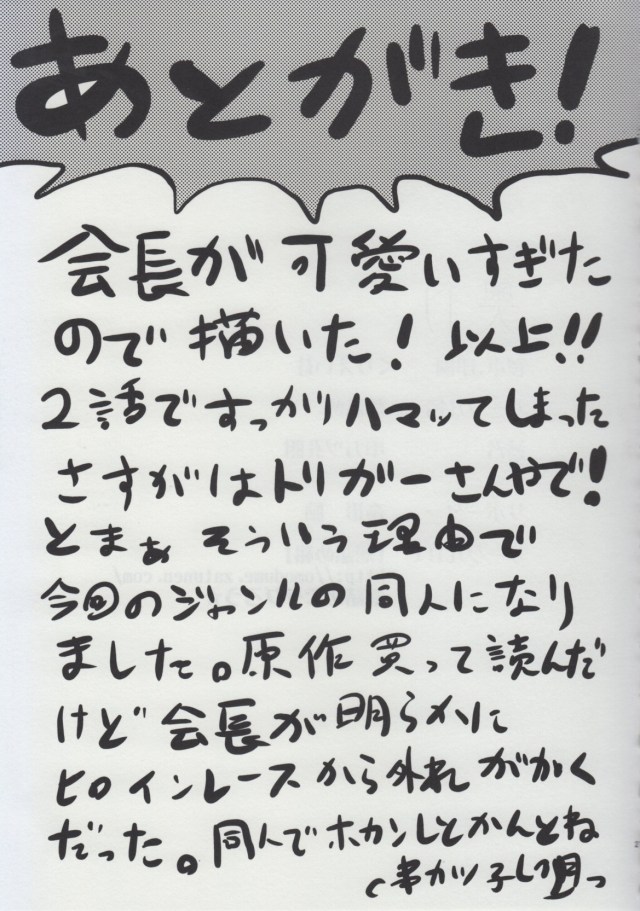 あとがき!
会長が可愛いすぎた
ので描いた!以上!!
2話ですっかりハマッてしまった
さすがはトリガーさんやで!
とまぁそういう理由で
今回のジャンルの同人になり
ました。原作買って読んだ
けど会長が明らかに
ヒロインレースから外れ
だった。同人でホカンしとかんとね
串カツ